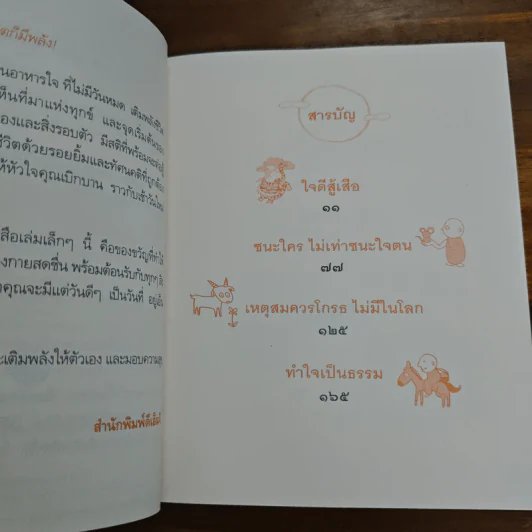 ก็มีพลัง!
นอาหารใจ ที่ไม่มีวันหมด เติมพลังชีวิต
ห็นที่มาแห่งทุกข์ และจุดเริ่มต้นของ
องและสิ่งรอบตัว มีสติที่พร้อมจะ
ชีวิตด้วยรอยยิ้มและทัศนคติที่ถูกต้อง
ให้หัวใจคุณเบิกบาน ราวกับเช้าวันใหม่
สือเล่มเล็กๆ นี้ คือของขวัญที่ทำให้
งกายสดชื่น พร้อมต้อนรับกับทุกๆ
คุณจะมีแต่วันดีๆ เป็นวันที่
ะเติมพลังให้ตัวเอง และมอบความสุข
สำนักพิมพ์
สารบัญ
ใจดีสู้เสือ
๑๑
ชนะใคร ไม่เท่าชนะใจตน
๗๗
เหตุสมควรโกรธ ไม่มีในโลก
๑๒๕
ทำใจเป็นธรรม
๑๖๕